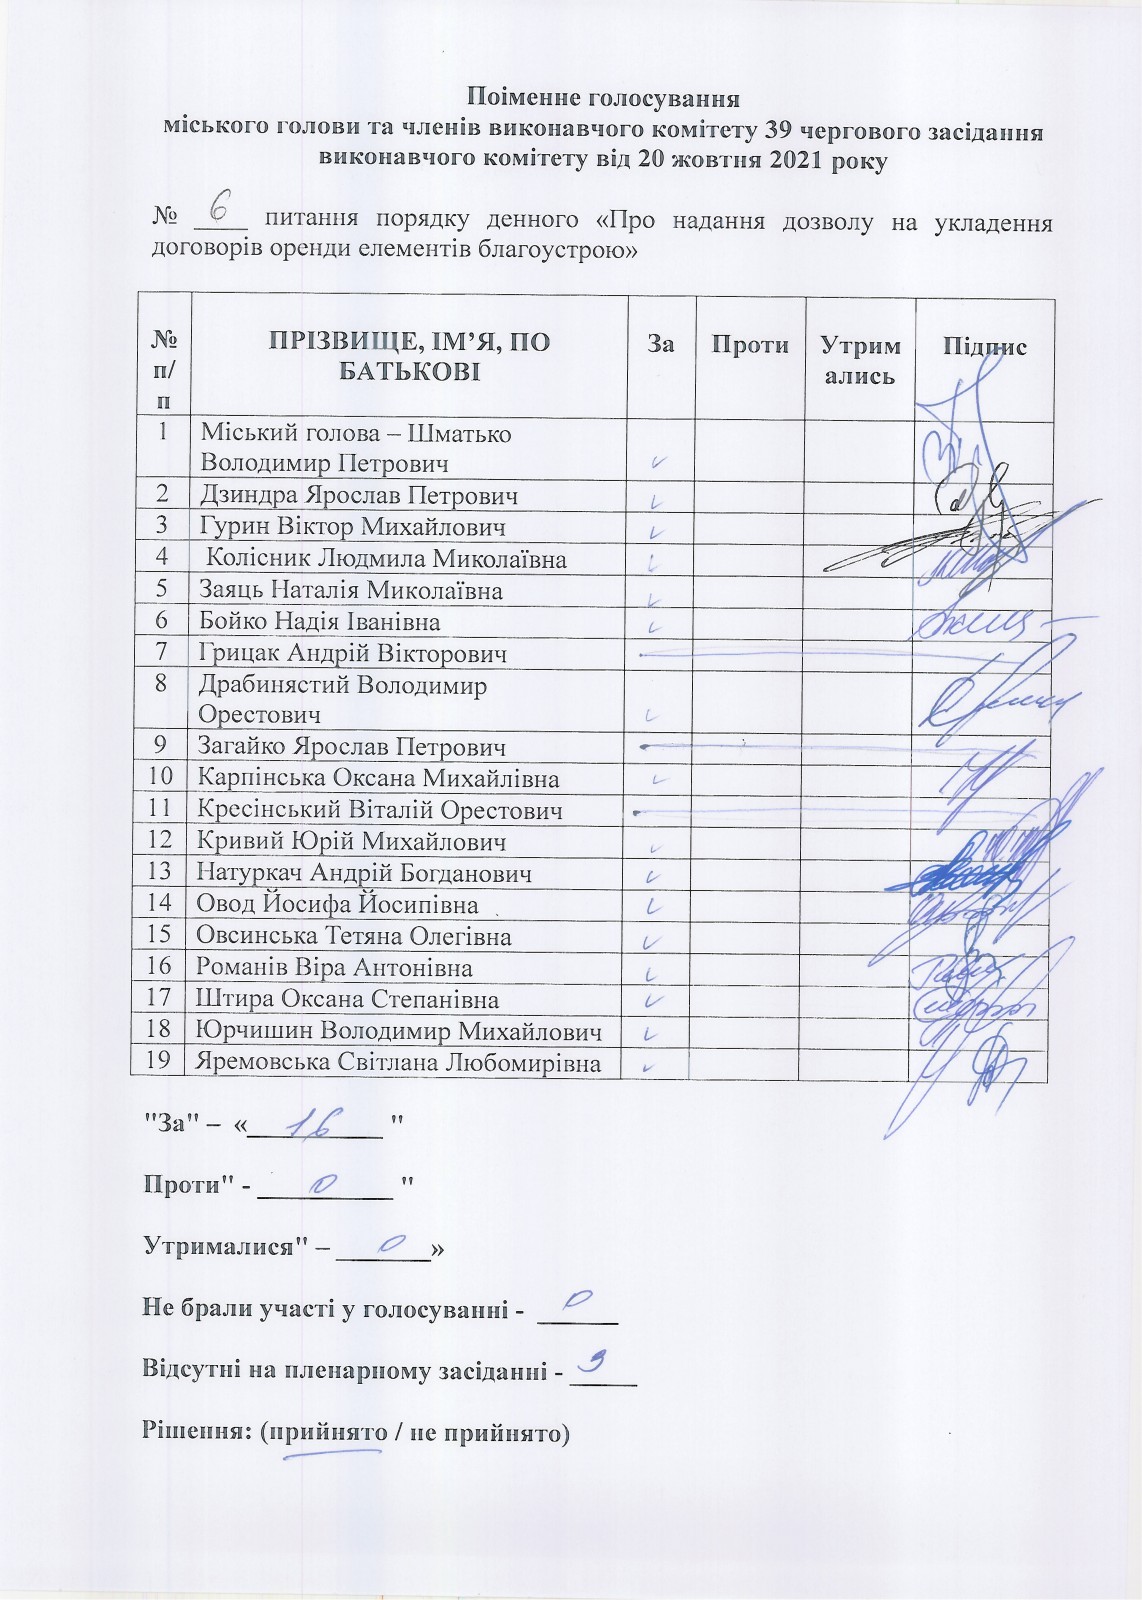 Поіменне голосування
міського голови та членів виконавчого комітету 39 чергового засідання
виконавчого комітету від 20 жовтня 2021 року
№ 6 питання порядку денного «Про надання дозволу на укладення
договорів оренди елементів благоустрою»
№ п/п ПРІЗВИЩЕ, ІМ’Я, ПО БАТЬКОВІ За Проти Утримались Підпис
1 Міський голова – Шматько
Володимир Петрович ✓
2 Дзиндра Ярослав Петрович ✓
3 Гурин Віктор Михайлович ✓
4 Колісник Людмила Миколаївна ✓
5 Заяць Наталія Миколаївна ✓
6 Бойко Надія Іванівна ✓
7 Грицак Андрій Вікторович
8 Драбинястий Володимир
Орестович ✓
9 Загайко Ярослав Петрович
10 Карпінська Оксана Михайлівна ✓
11 Кресінський Віталій Орестович
12 Кривий Юрій Михайлович ✓
13 Натуркач Андрій Богданович ✓
14 Овод Йосифа Йосипівна ✓
15 Овсинська Тетяна Олегівна ✓
16 Романів Віра Антонівна ✓
17 Штира Оксана Степанівна ✓
18 Юрчишин Володимир Михайлович ✓
19 Яремовська Світлана Любомирівна ✓
"За" – « 16 "
Проти" - 0 "
Утрималися" – 0 »
Не брали участі у голосуванні - 0
Відсутні на пленарному засіданні - 3
Рішення: (прийнято / не прийнято)